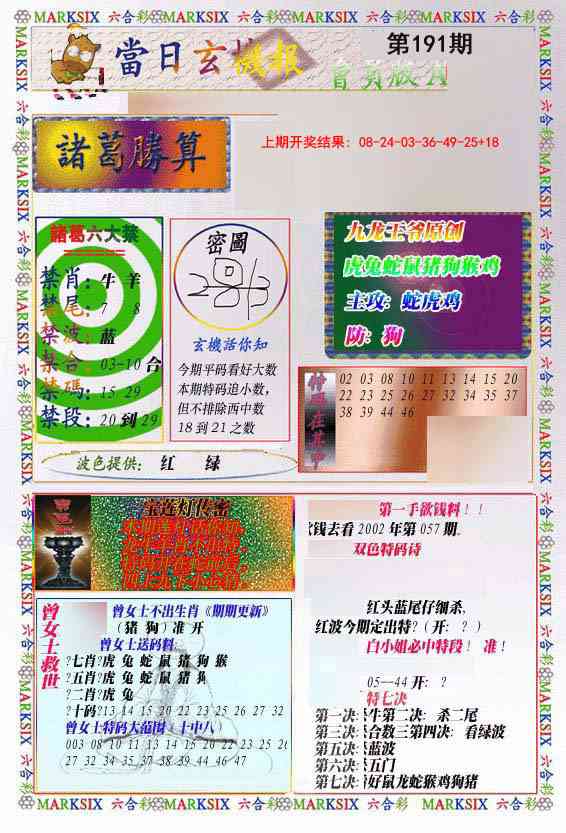 MARKSIX 六合彩 MARKSIX 六合彩 MARKSIX 六合彩 MARKSIX 六合彩
當日玄機報
第191期
會員版A
諸葛勝算
上期开奖结果: 08-24-03-36-49-25+18
諸葛六大禁
禁肖: 牛 羊
禁尾: 7 8
禁波: 蓝
禁合: 03-10 合
禁碼: 15 29
禁段: 20 到 29
密圖
玄機活你知
今期平码看好大数
本期特码追小数,
但不排除西中数
18 到 21 之数
九龙王爷原创
虎兔蛇鼠猪狗猴鸡
主攻: 蛇虎鸡
防: 狗
02 03 08 10 11 13 14 15 20
22 23 25 26 27 32 34 35 37
38 39 44 46
波色提供: 红 绿
宝莲灯传密
曾女士救世
曾女士不出生肖《期期更新》
(猪 狗) 准 开
曾女士送码料
?七肖?虎 兔 蛇 鼠 猪 狗 猴
?五肖?虎 兔 蛇 鼠 猪 狗
?二肖?虎 兔
?十码?13 14 15 20 22 23 25 26 27 32
曾女士特码大范围〔十中八〕
003 08 10 11 13 14 15 20 22 23 25 26
27 32 34 35 37 38 39 44 46 47
第一手欲钱料!!
欲钱去看 2002 年第 057 期。
双色特码诗
红头蓝尾仔细杀,
红波今期定出特?(开: ?)
白小姐必中特段! 准!
05—44 开: ?
特七决
第一决:牛第二决: 杀二尾
第三决:合数三第四决: 看绿波
第五决:蓝波
第六决:五门
第七决:好鼠龙蛇猴鸡狗猪
MARKSIX 六合彩 MARKSIX 六合彩 MARKSIX 六合彩 MARKSIX 六合彩